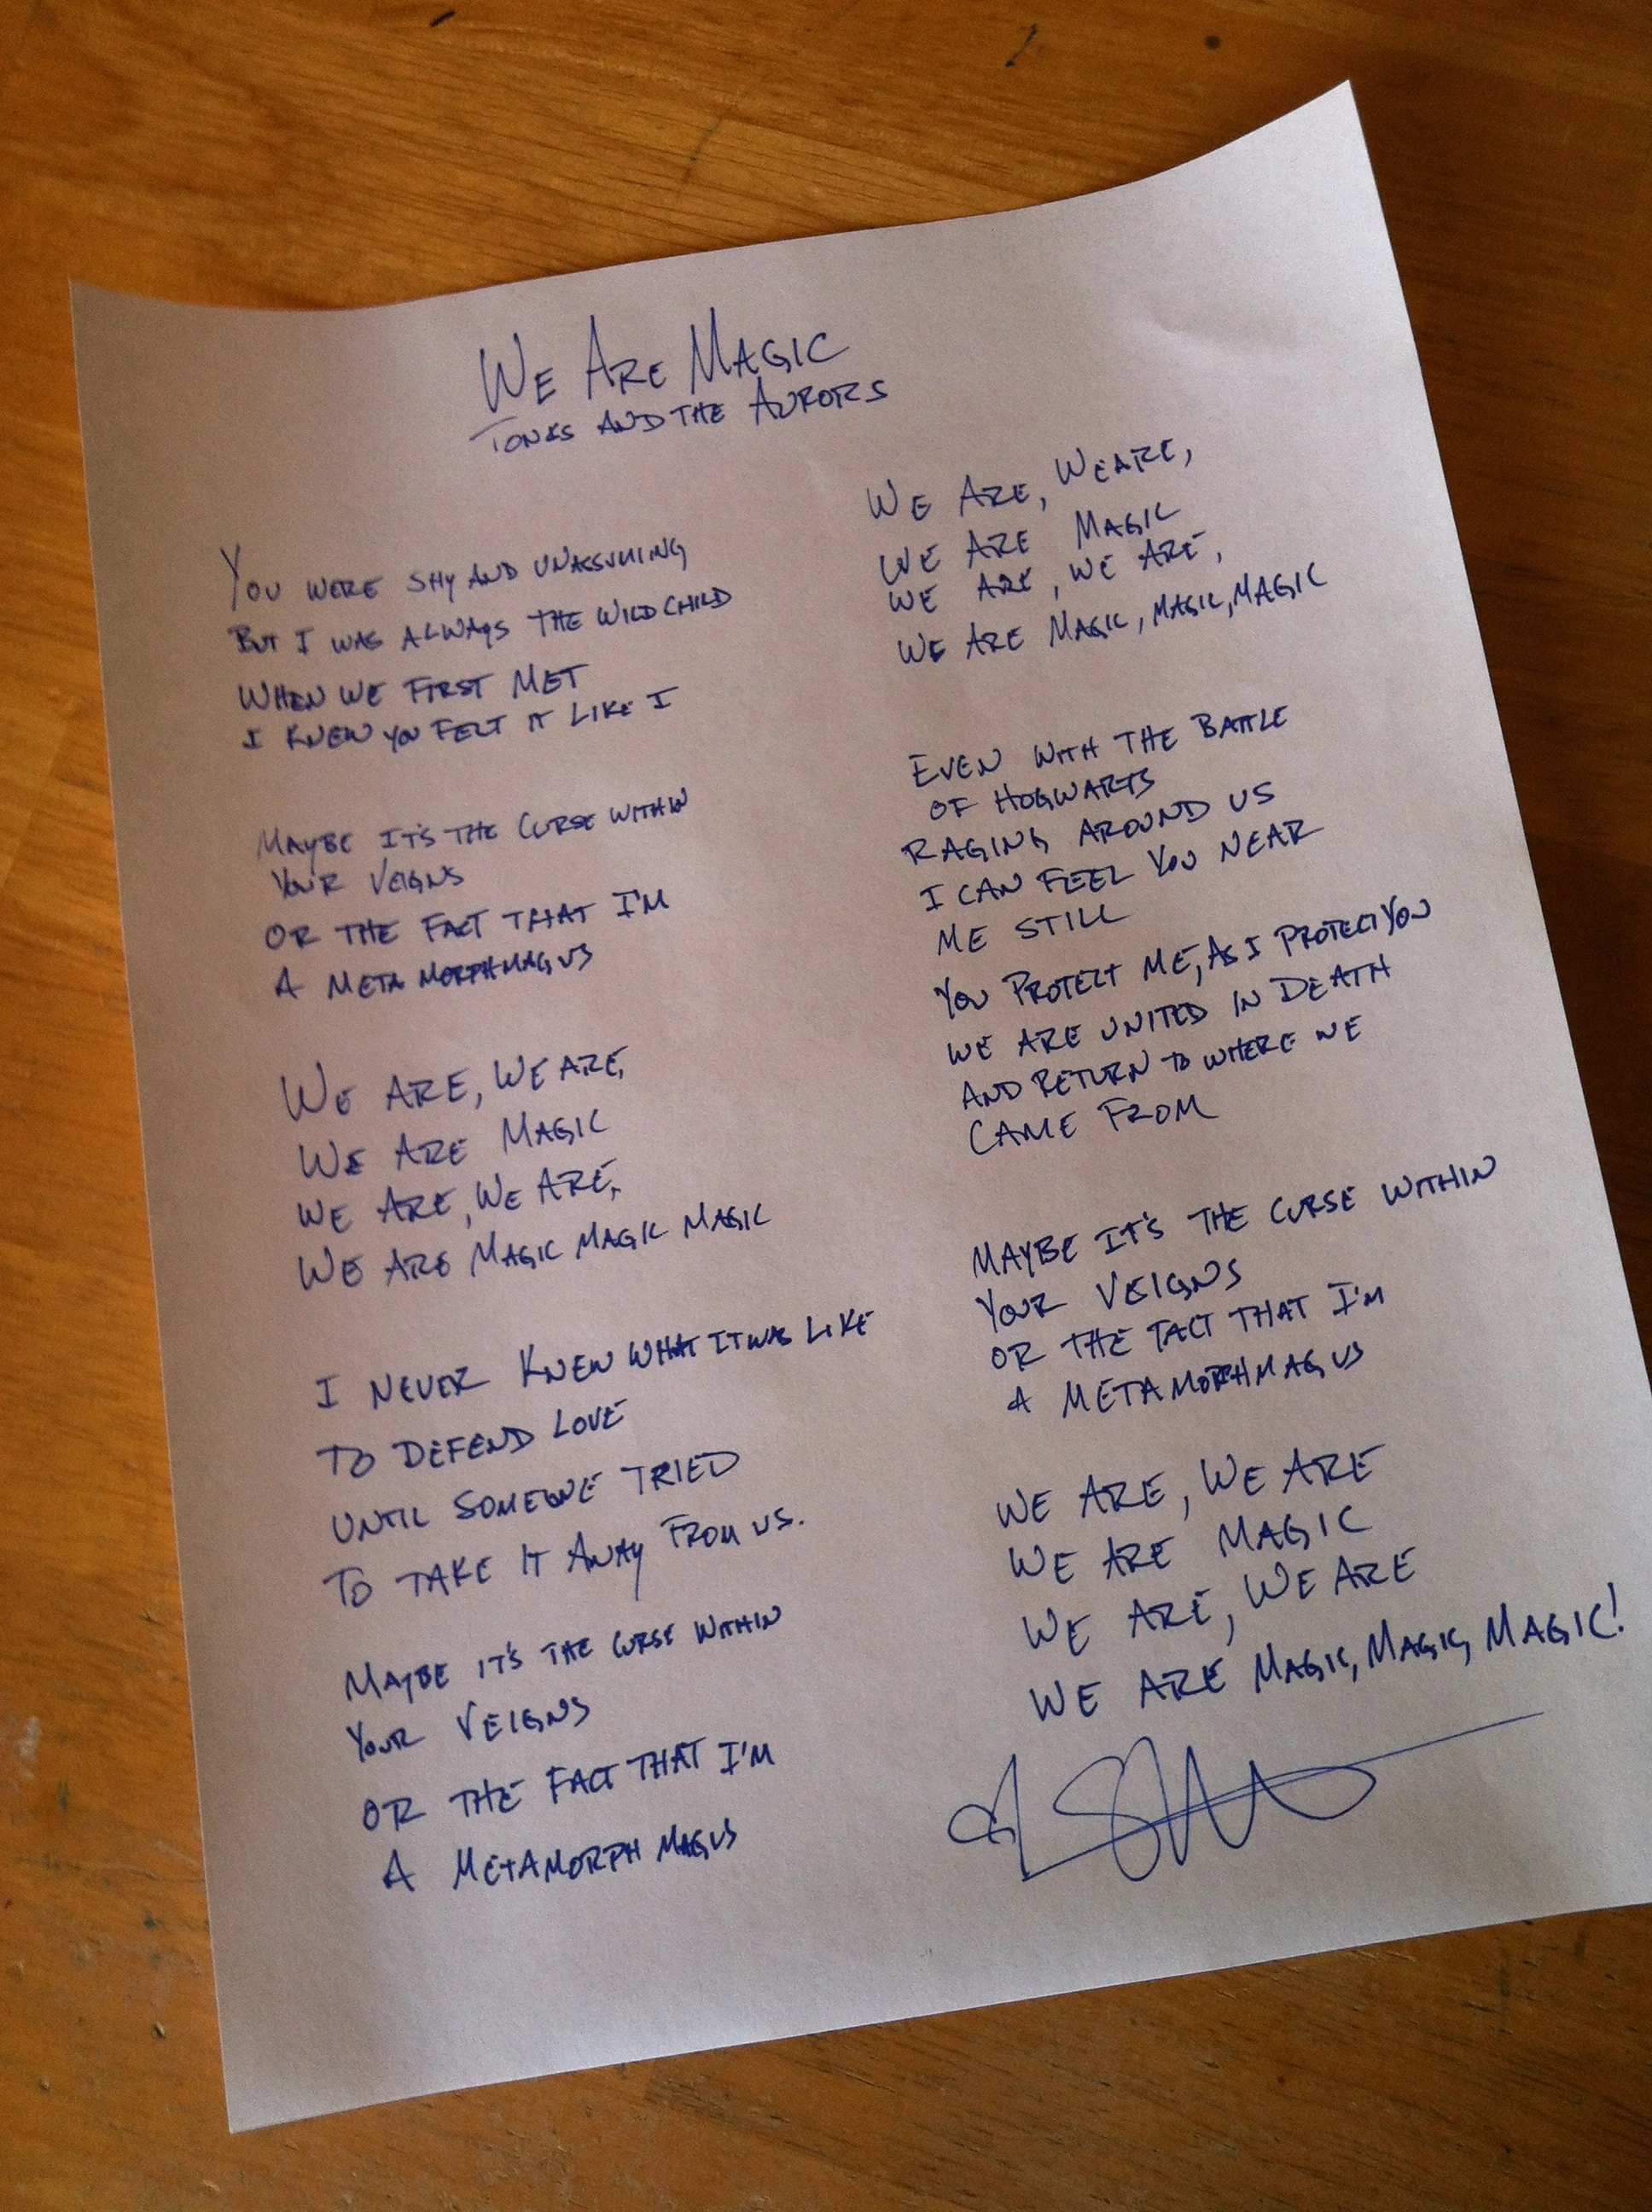 WE ARE MAGIC
TONKS AND THE AURORS
YOU WERE SHY AND UNASSUMING
BUT I WAS ALWAYS THE WILD CHILD
WHEN WE FIRST MET
I KNEW YOU FELT IT LIKE I
MAYBE IT'S THE CURSE WITHIN
YOUR VEIGNS
OR THE FACT THAT I'M
A METAMORPHMAGUS
WE ARE, WE ARE,
WE ARE MAGIC
WE ARE, WE ARE,
WE ARE MAGIC MAGIC MAGIC
I NEVER KNEW WHAT IT WAS LIKE
TO DEFEND LOVE
UNTIL SOMEONE TRIED
TO TAKE IT AWAY FROM US.
MAYBE IT'S THE CURSE WITHIN
YOUR VEIGNS
OR THE FACT THAT I'M
A METAMORPHMAGUS
WE ARE, WE ARE,
WE ARE MAGIC
WE ARE, WE ARE,
WE ARE MAGIC, MAGIC, MAGIC
EVEN WITH THE BATTLE
OF HOGWARTS
RAGING AROUND US
I CAN FEEL YOU NEAR
ME STILL
YOU PROTECT ME, AS I PROTECT YOU
WE ARE UNITED IN DEATH
AND RETURN TO WHERE WE
CAME FROM
MAYBE IT'S THE CURSE WITHIN
YOUR VEIGNS
OR THE FACT THAT I'M
A METAMORPHMAGUS
WE ARE, WE ARE
WE ARE MAGIC
WE ARE, WE ARE
WE ARE MAGIC, MAGIC, MAGIC!